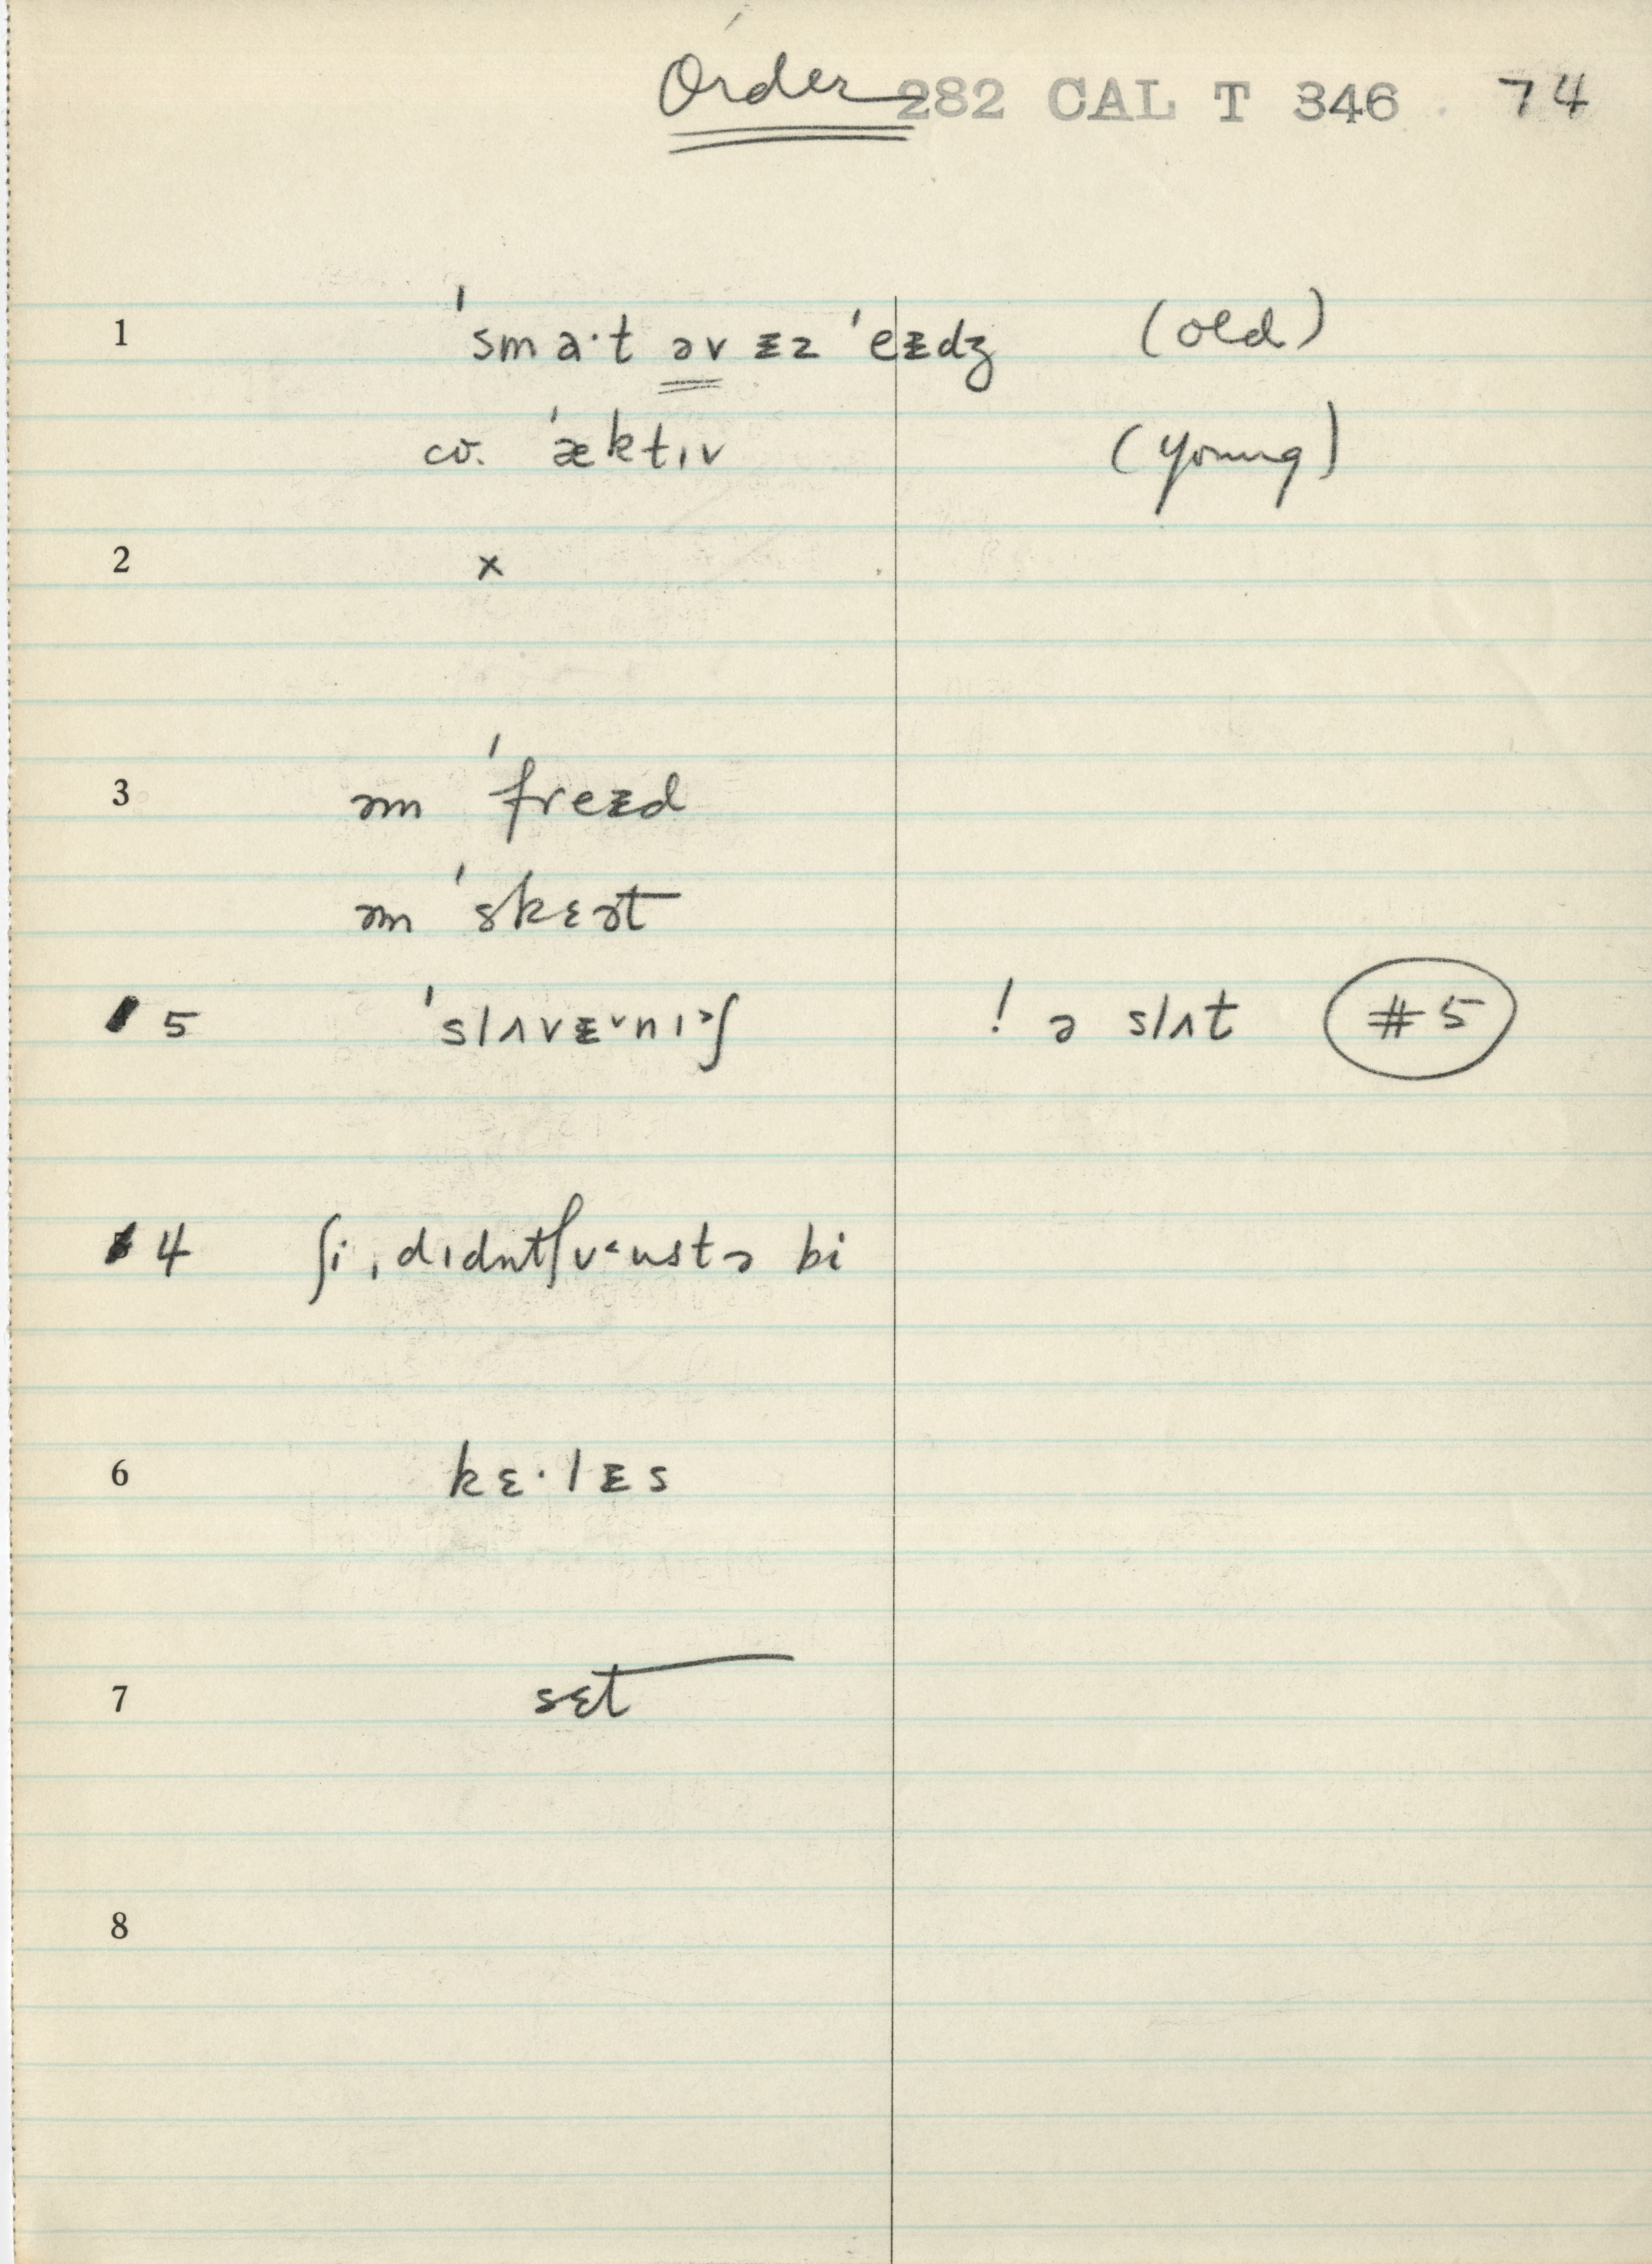 Order 282 CAL T 346 74
1 ˈsmaˑt əv ᵻz ˈeᵻdʒ (old)
cv. ˈæktɪv (young)
2 ×
3 əm ˈfreᵻd
əm ˈskɛət
5 ˈslʌvᵻ˅nɪ˃ʃ ! ə slʌt #5
4 ʃi ˌdɪdnt ʃv˂ustə bi
6 kɛˑlᵻs
7 sɛt
8